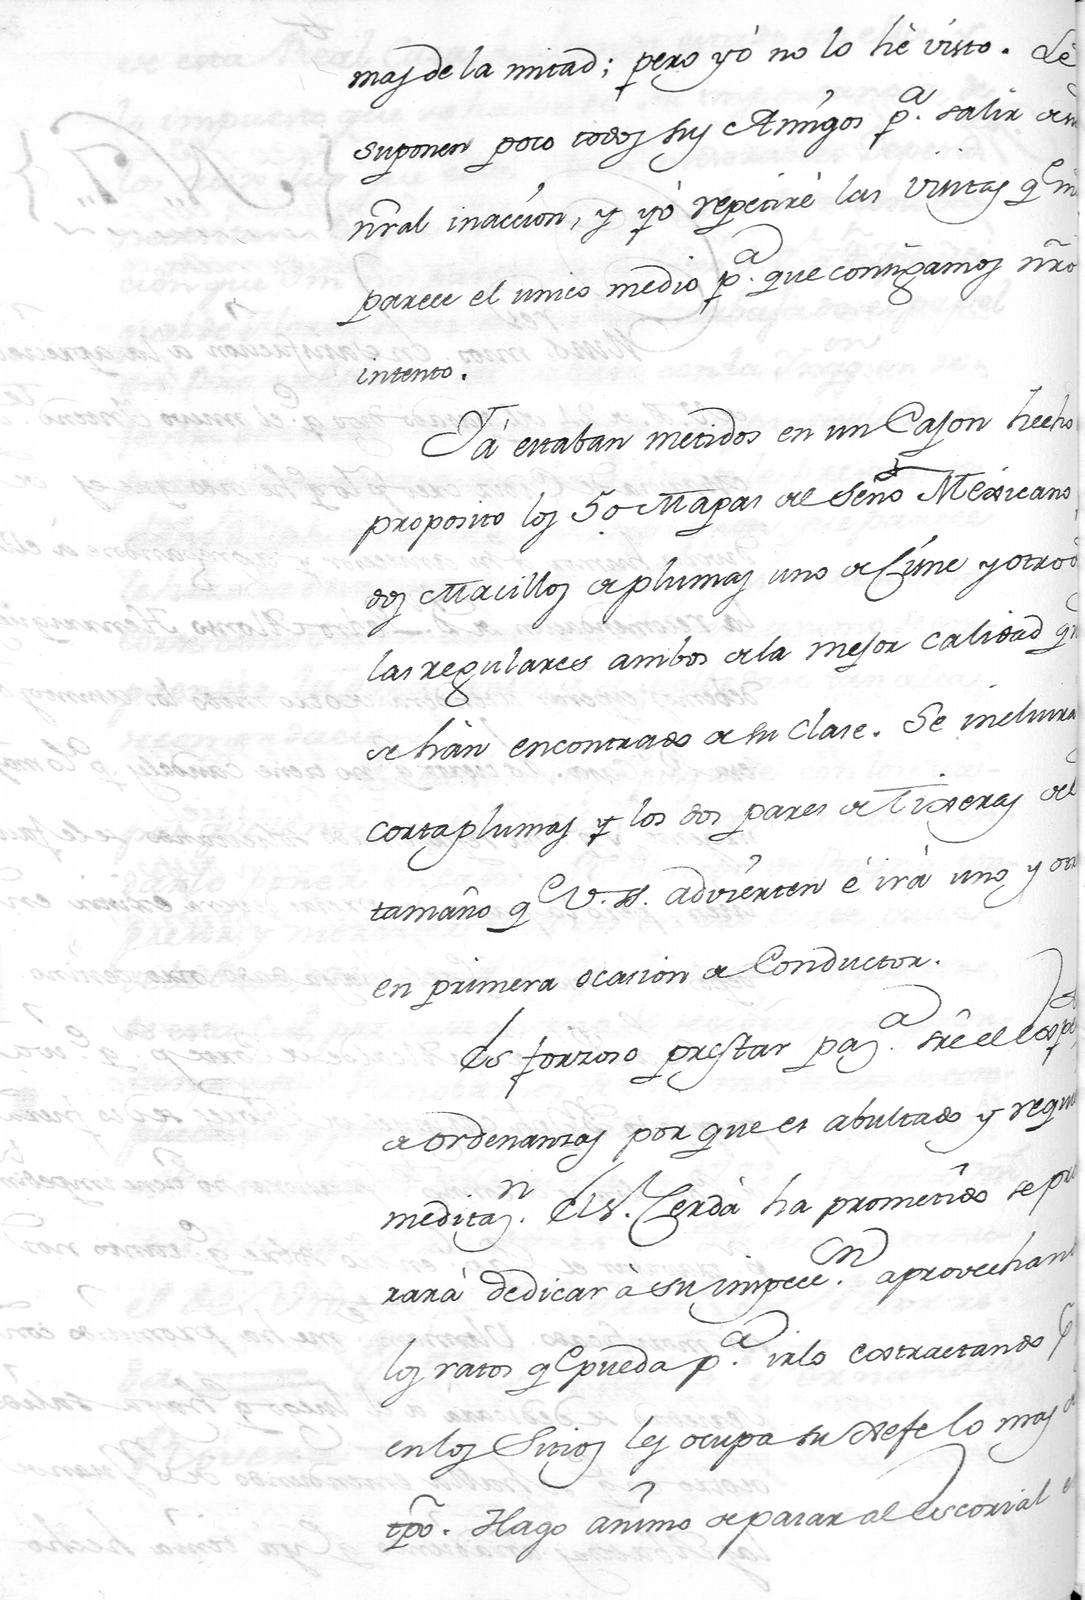 mas de la mitad; pero yó no lo hè visto. Le
suponen poco todos sus Amigos p.ª salir de su
nr̃al inaccion, y yó repetirè las visitas q.e me
parece el unico medio p.ª que consigamos nr̃o
intento.
Yá estaban metidos en un Cajon hecho
proposito los 50 Mapas del Seno Mexicano,
dos Macillos de plumas uno de Cisne y otro de
las regulares ambos de la mejor calidad q.e
se hàn encontrado de su clase. Se incluirà
cortaplumas y los dos pares de Tixeras del
tamaño q.e V.SS. advierten è irà uno y otro
en primera ocasion de Conductor.
Es forzoso prestar pas.ª sr̃e el exp.te
de ordenanzas por que es abultado y
meditas.n El S.r Cerdà ha prometido se
rarà dedicar à su impecc.n aprovechan
los ratos q.e pueda p.ª irlo extractando
en los Sitios les ocupa su Xefe lo mas
tpõ. Hago animo de pasar al Escorial